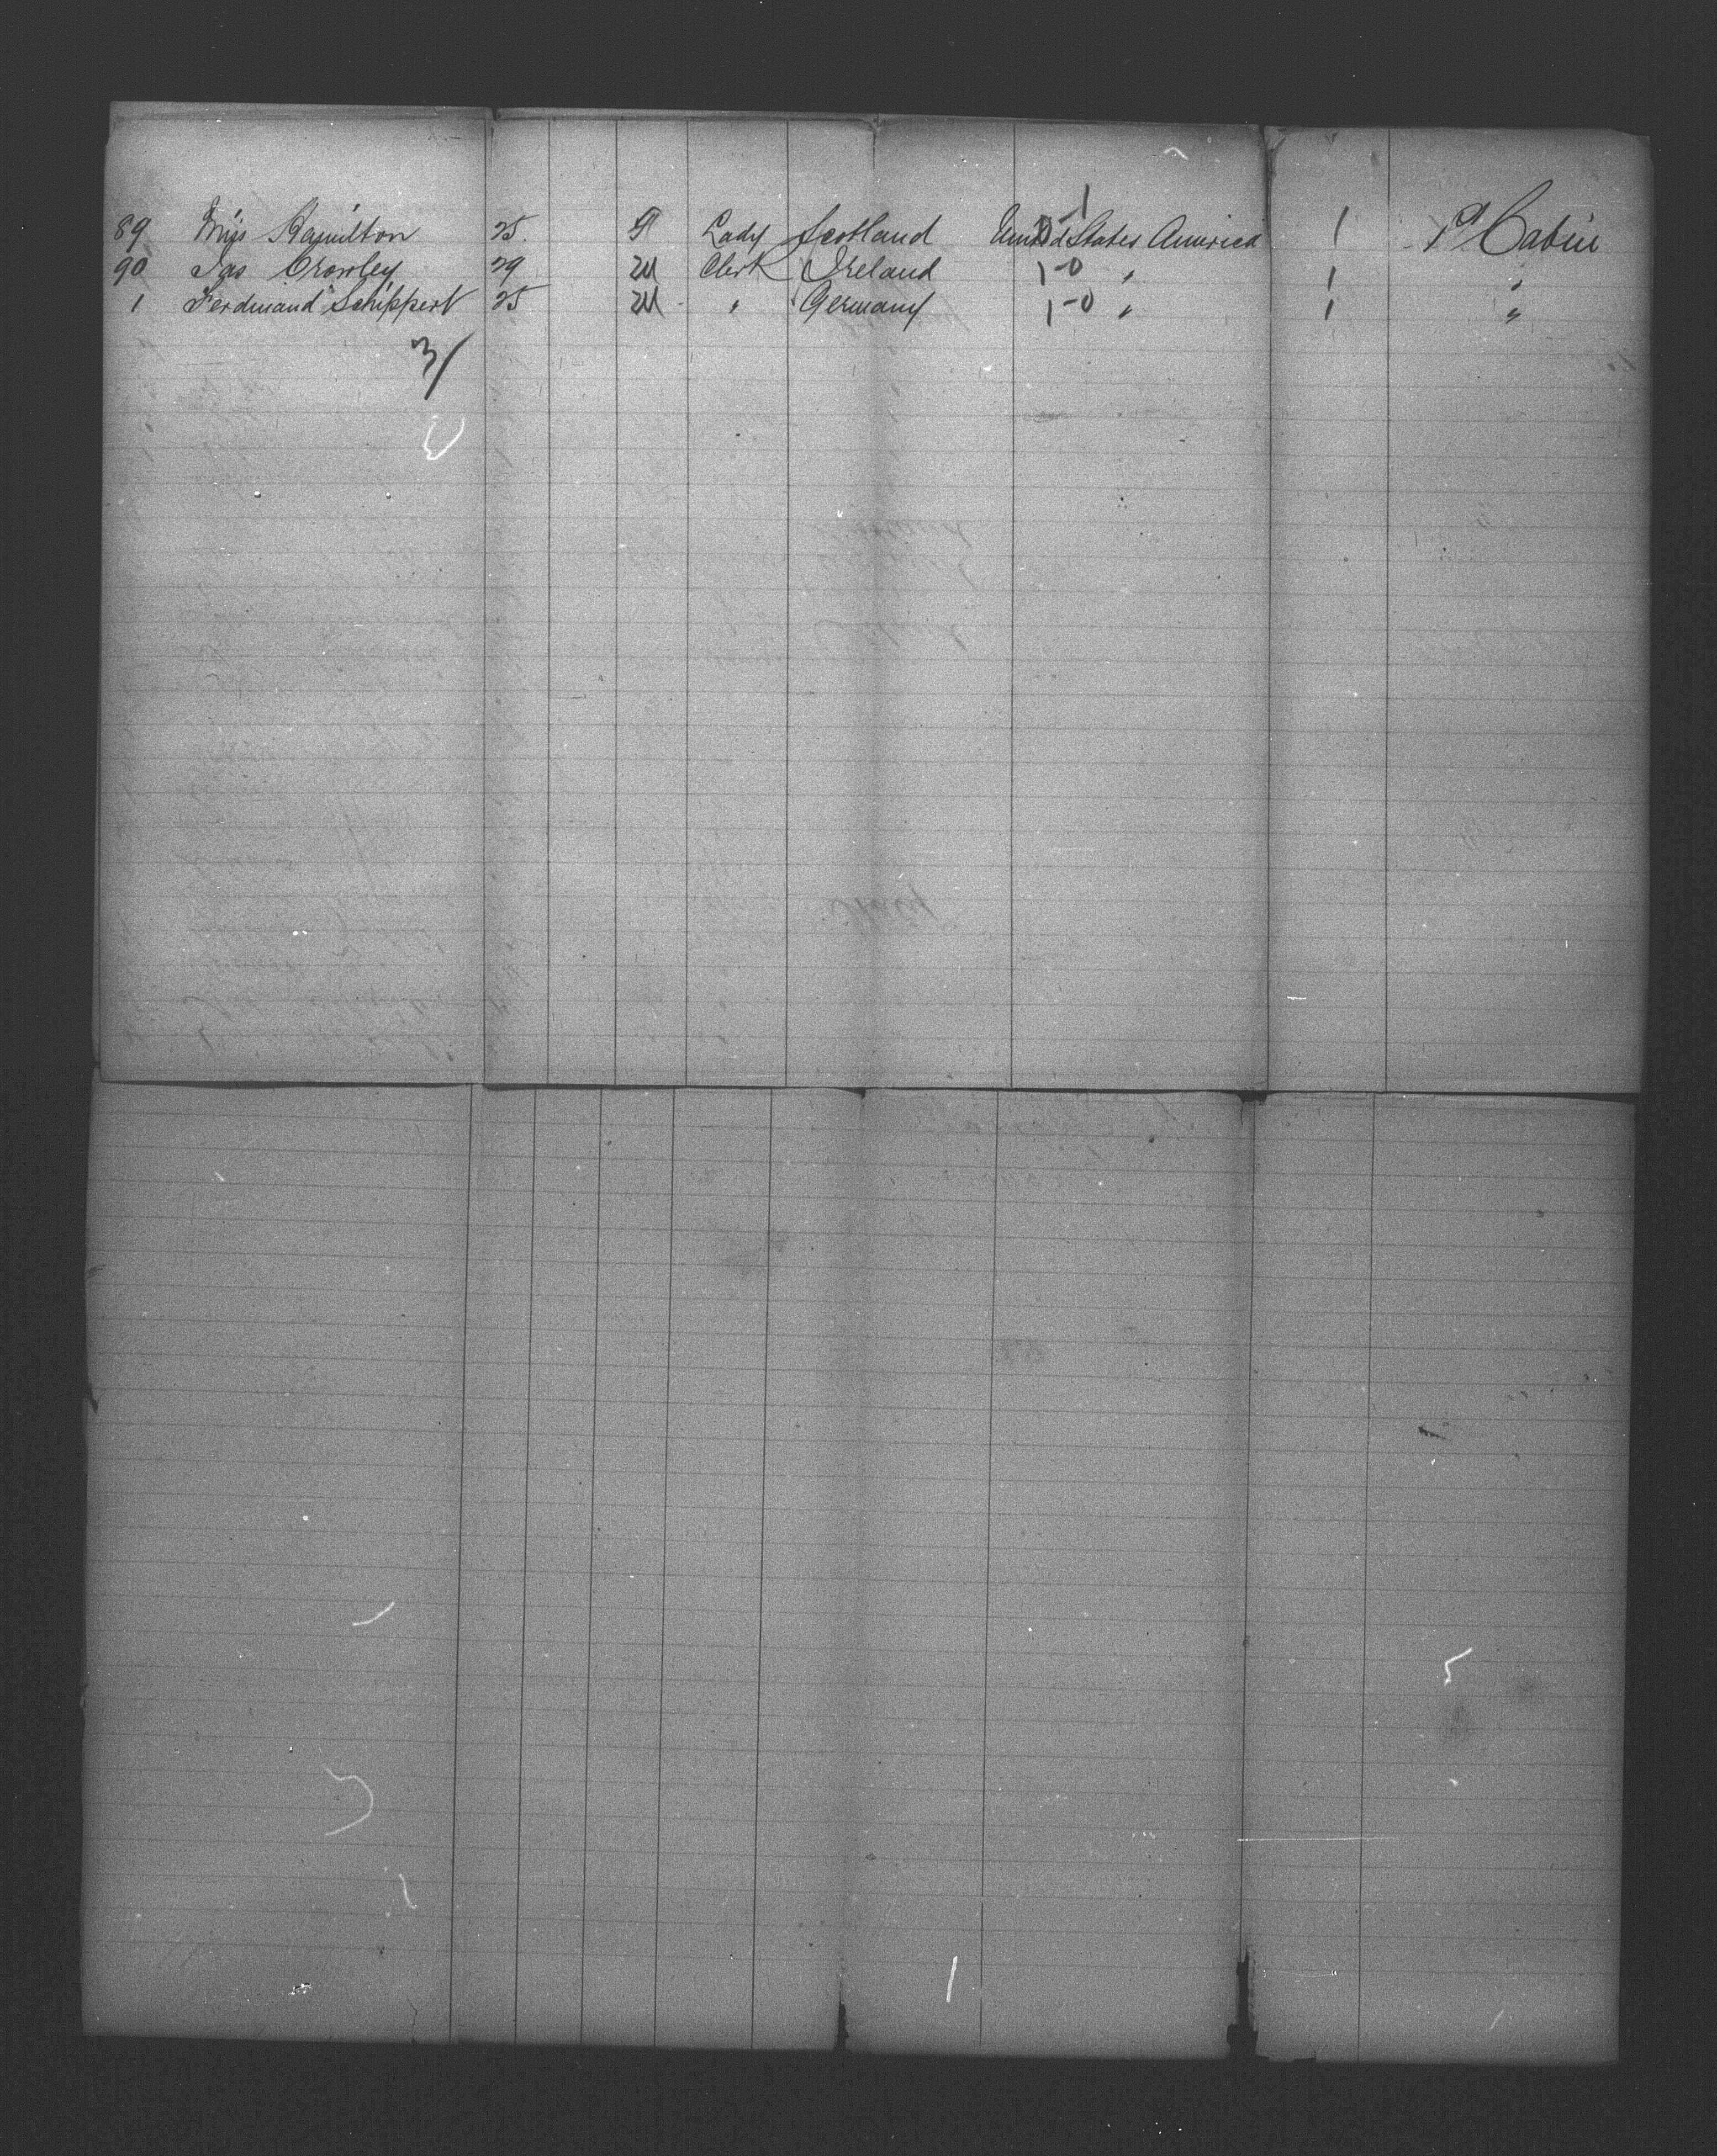 89 Miss Hamilton 25. F Lady Scotland 0-1 United States America 1 Sl Cabin
90 Jas Crowley 29 M Clerk Ireland 1-0 " 1 "
1 Ferdinand Schippert 25 M " Germany 1-0 " 1 "
3/